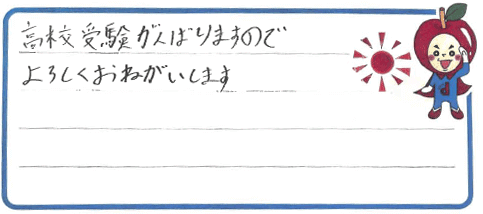 高校受験がんばりますので
よろしくおねがいします